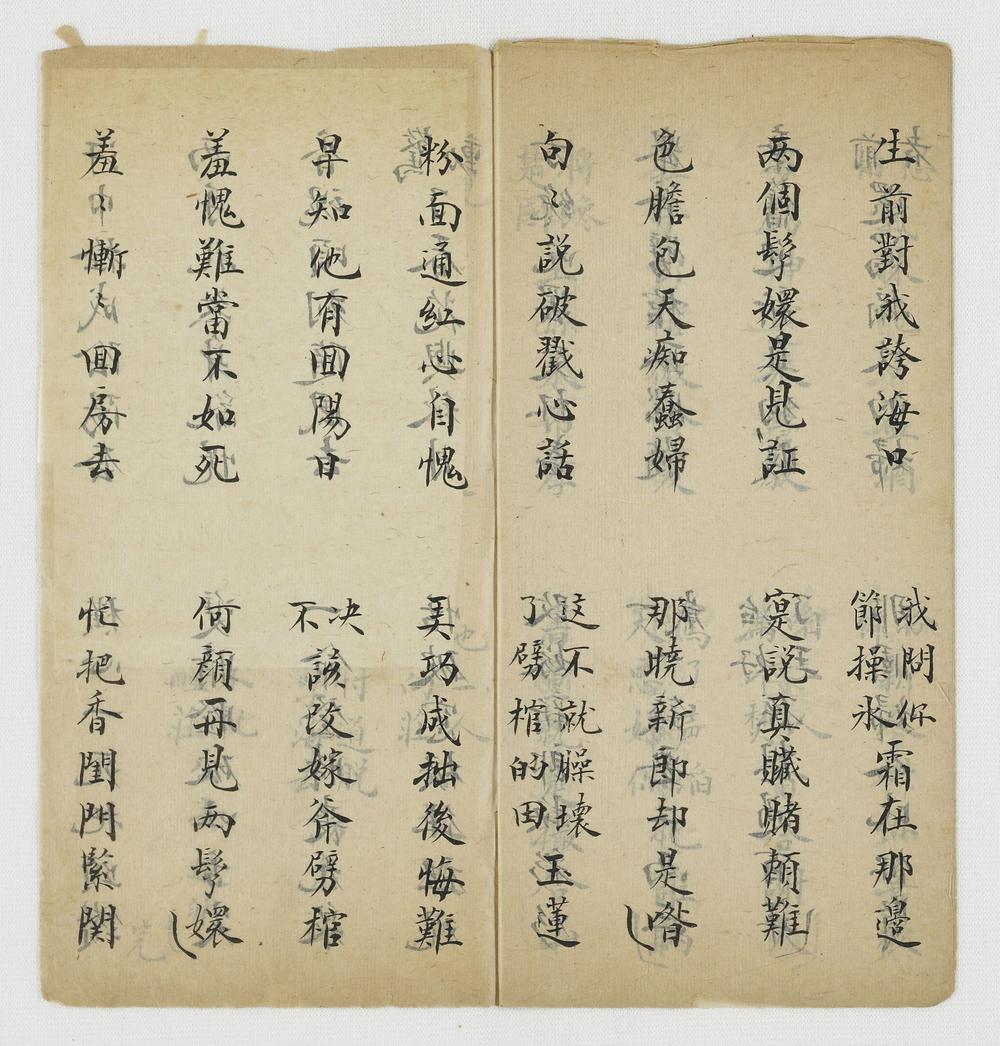 生前對我誇海口 我問你節操氷霜在那邊
两個髩嬛是見証 寔説真贓賭頼難
色膽包天痴蠢婦 那曉新郎却是喒
句〻説破戳心話 这不就臊壞了劈棺的田玉蓮
粉面通紅心自愧 巧成拙後悔難
早知他有囬陽日 决不該改嫁斧劈棺
羞愧難當不如死 何顔再見两髩嬛
羞〻慚〻囬房去 忙把香閨門緊関